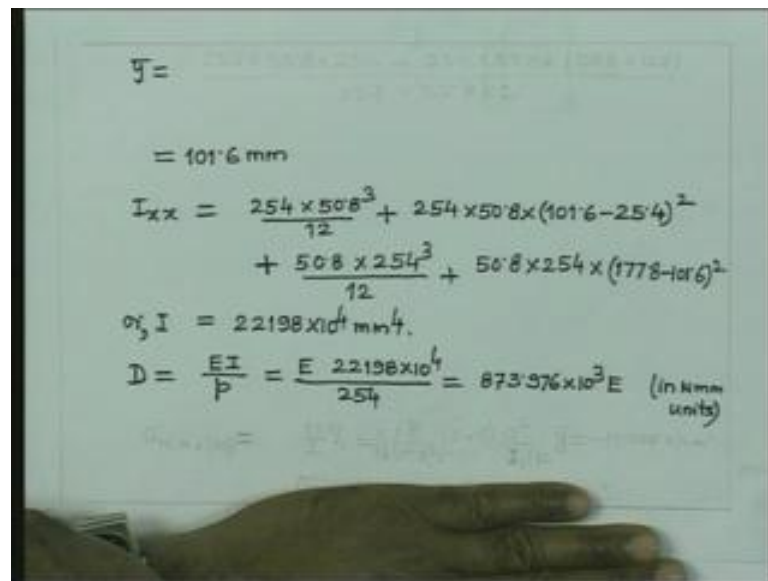 ȳ =
= 101·6 mm
I_xx = 254 × 50·8³/12 + 254 × 50·8 × (101·6 - 25·4)²
+ 50·8 × 254³/12 + 50·8 × 254 × (177·8 - 101·6)²
or, I = 22198 × 10⁴ mm⁴.
D = EI/p = E 22198 × 10⁴/254 = 873·976 × 10³ E (in N mm
units)